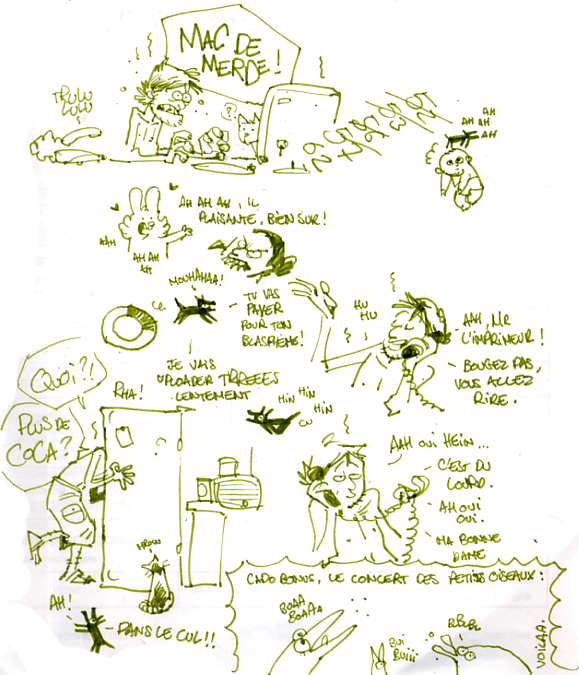 MAC DE
MERDE!
TRULU
LULU
?
AH
AH AH
AH
AH AH AH, IL
PLAISANTE, BIEN SUR!
AAH
AH AH
AH
MOUHAHAA!
TU VAS
PAYER
POUR TON
BLASPHÈME!
HU
HU
AAH, MR
L'IMPRIMEUR!
BOUGEZ PAS,
VOUS ALLEZ
RIRE.
JE VAIS
UPLOADER TRREEES
LENTEMENT
HIN HIN
HIN
QUOI?!
PLUS DE
COCA?
RHA!
AAH OUI HEIN...
C'EST DU
LOURD.
AH OUI
OUI.
MA BONNE
DAME
MROW
AH!
DANS LE CUL!!
CADO BONUS, LE CONCERT DES PETITS OISEAUX:
BOAA
BOAAA
BUI
BUIII
VOILAA.